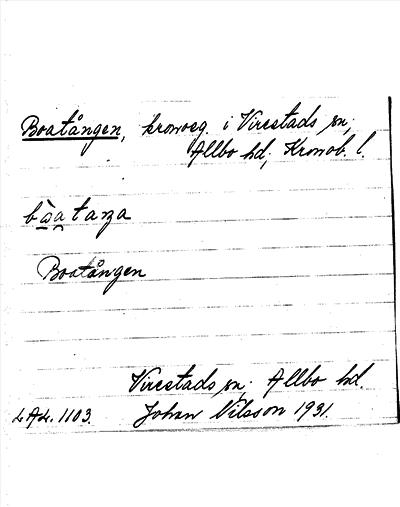 Boatången, kronoeg. i Virestads sn,
Allbo hd, Kronob. l.
Boatången
Virestads sn, Allbo hd.
LAL. 1103. Johan Nilsson 1931.